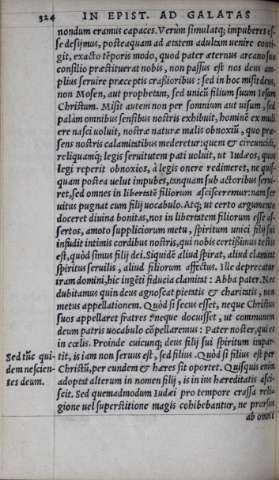 324 IN EPIST. AD GALATAS
nondum eramus capaces. Verùm simulatq; impuberes es-
se desijmus, posteaquam ad ætatem adultam uenire conti-
git, exacto tēporis modo, quod pater æternus arcano suo
consilio præstituerat nobis, non passus est nos deus am-
plius seruire præceptis crassioribus: sed in hoc misit deus,
non Mosen, aut prophetam, sed unicū filium suum Iesum
Christum. Misit autem non per somnium aut uisum, sed
palàm omnibus sensibus nostris exhibuit, hominē ex muli
ere nasci uoluit, nostræ naturæ malis obnoxiū, quo præ-
sens nostris calamitatibus mederetur: quem & circuncidi,
reliquamq; legis seruitutem pati uoluit, ut Iudæos, quos
legi reperit obnoxios, à legis onere redimeret, ne quis-
quam postea uelut impubes, tanquam sub actoribus serui-
ret, sed omnes in libertatē filiorum ascisceremur: nam ser
uitus pugnat cum filij uocabulo. Atq; ut certo argumento
doceret diuina bonitas, nos in libertatem filiorum esse as-
sertos, amoto suppliciorum metu, spiritum unici filij sui
infudit intimis cordibus nostris, qui nobis certissimus testis
est, quòd simus filij dei. Siquidē aliud spirat, aliud clamat
spiritus seruilis, aliud filiorum affectus. Ille deprecatur
iram domini, hic ingēti fiducia clamat: Abba pater. Nec
dubitamus quin deus agnoscat pietatis & charitatis, non
metus appellationem. Quòd si secus esset, neque Christus
suos appellaret fratres: neque docuisset, ut communem
deum patris uocabulo cōpellaremus: Pater noster, qui es
in cœlis. Proinde cuicunq; deus filij sui spiritum impar-
Sed tūc qui- tit, is iam non seruus est, sed filius. Quòd si filius est per
dem nescien- Christū, per eundem & hæres sit oportet. Quisquis enim
tes deum. adoptat alterum in nomen filij, is in ius hæreditatis asci-
scit. Sed quemadmodum Iudæi pro tempore crassa reli-
gione uel superstitione magis cohibebantur, ne prorsus
ab omni